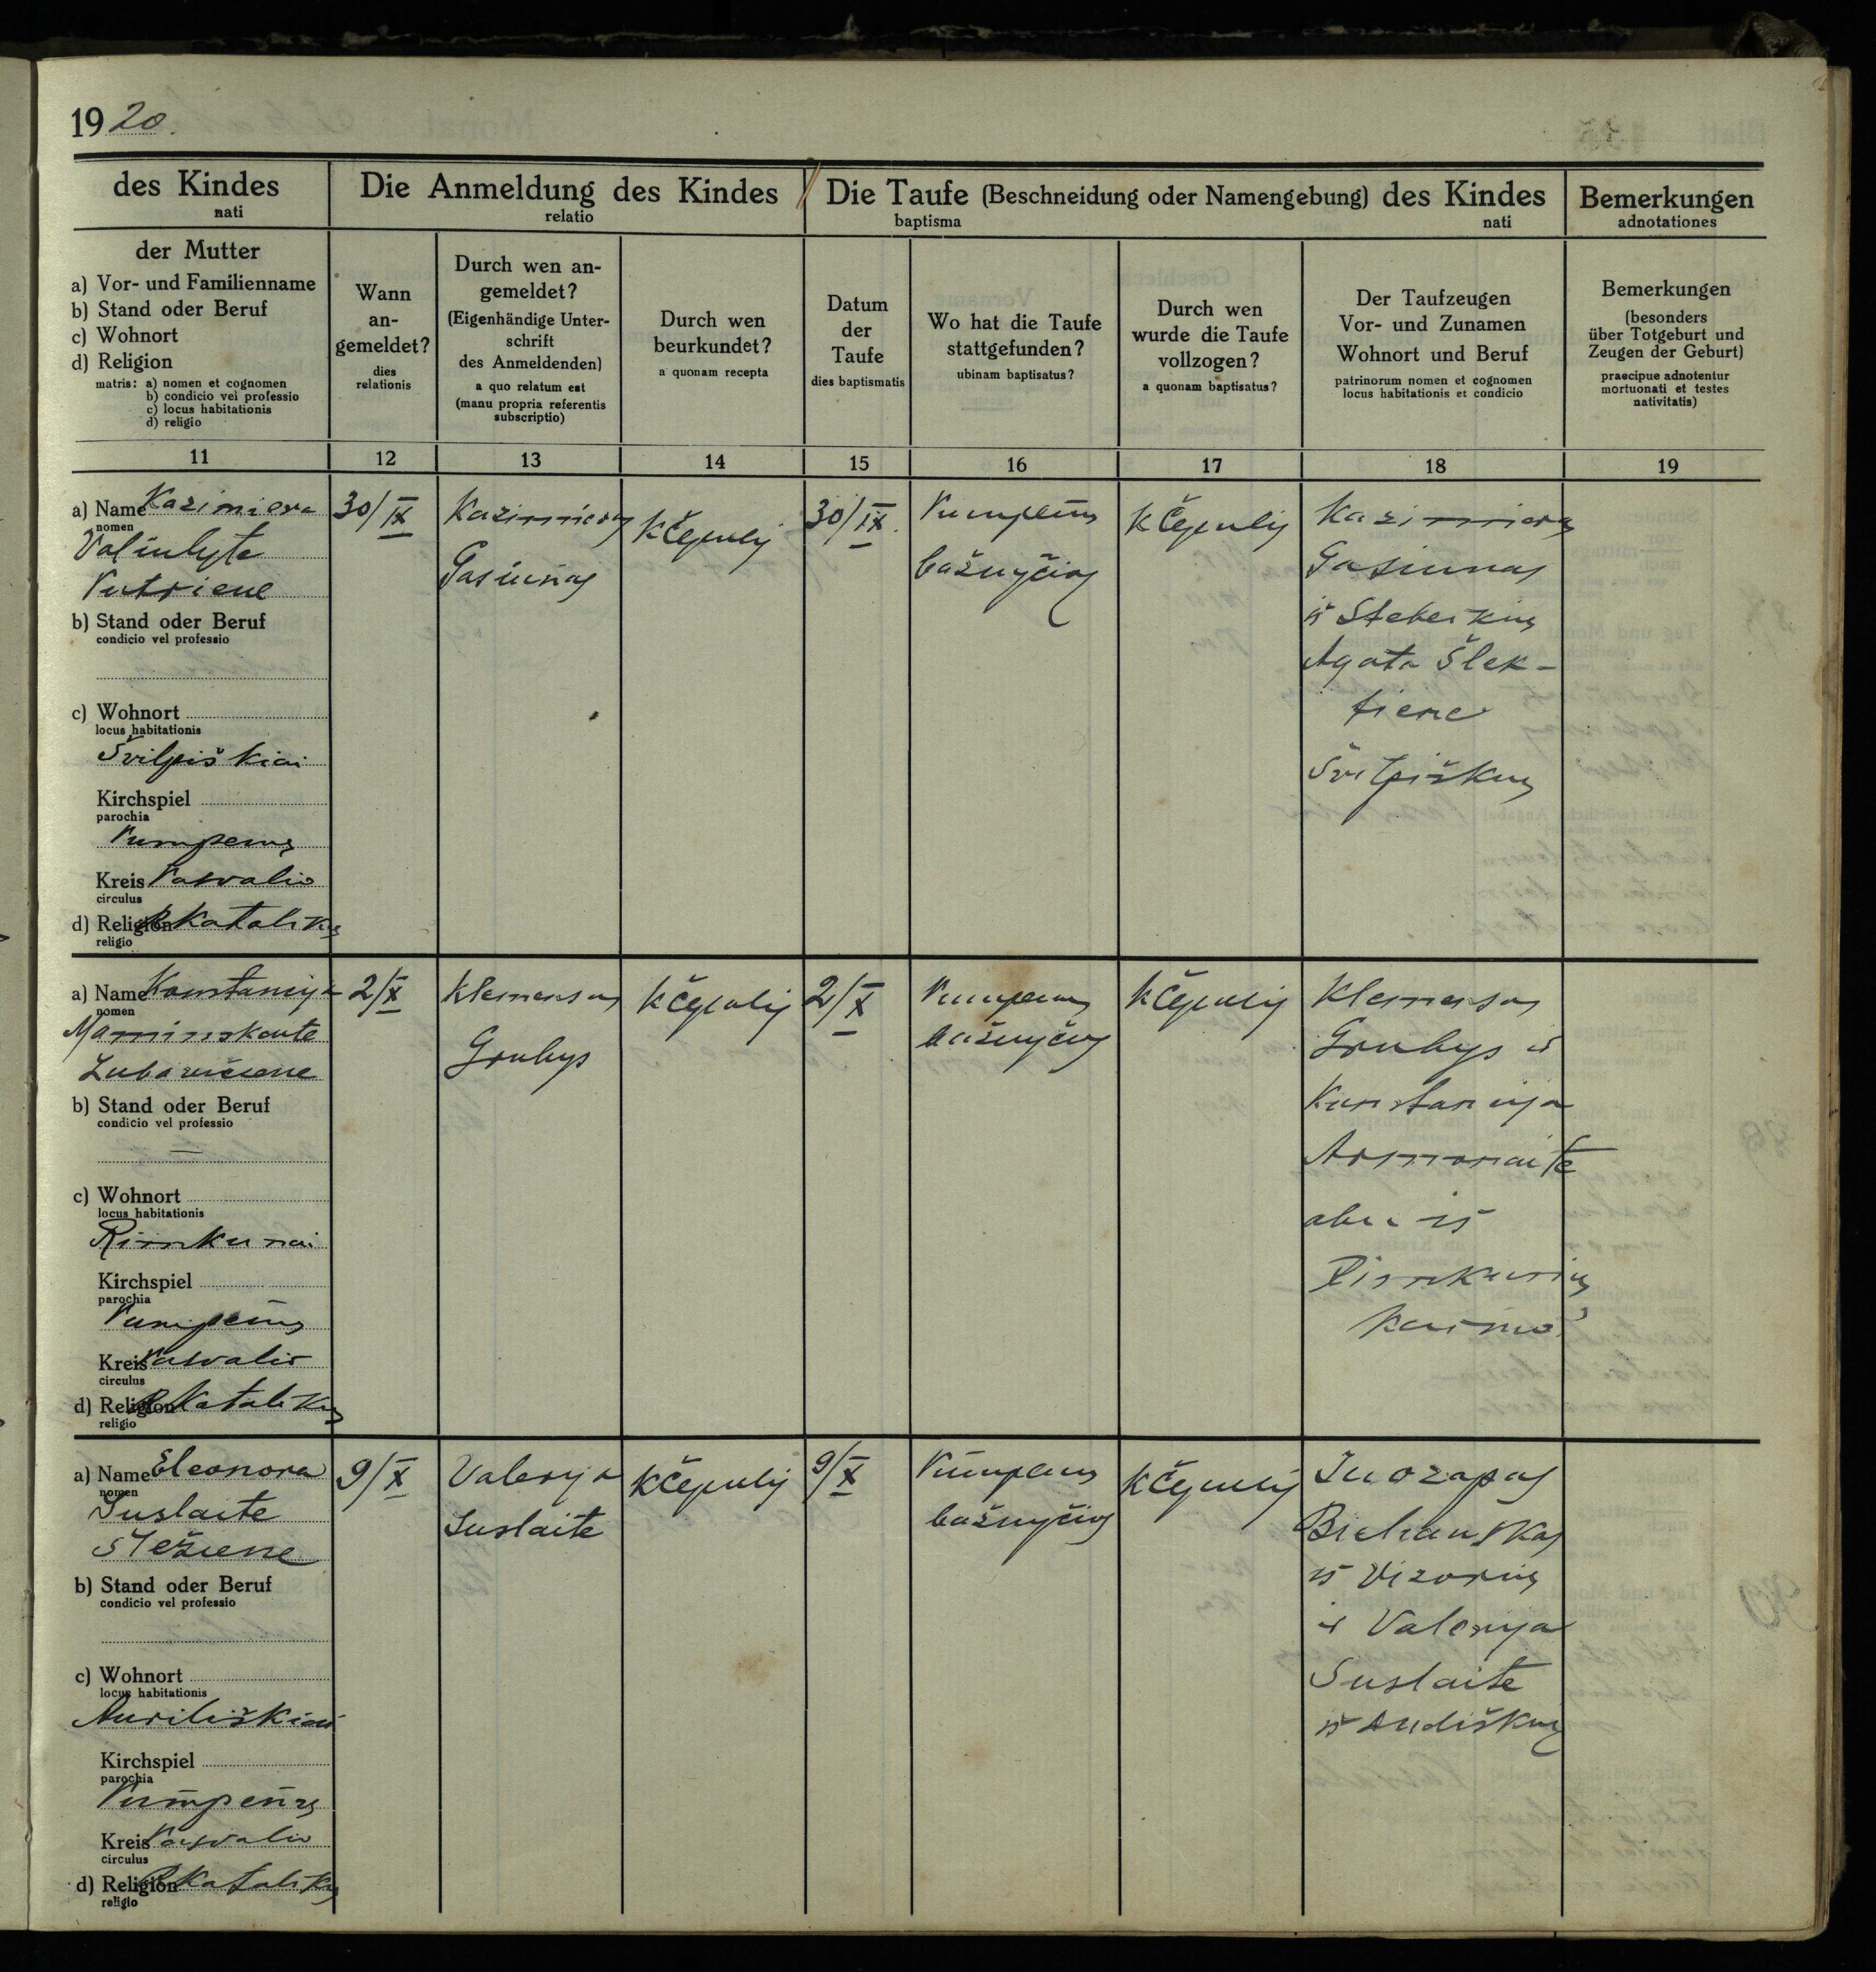 1920.
des Kindes
nati
Die Anmeldung des Kindes
relatio
Die Taufe (Beschneidung oder Namengebung) des Kindes
baptisma
nati
Bemerkungen
adnotationes
der Mutter
a) Vor- und Familienname
b) Stand oder Beruf
c) Wohnort
d) Religion
matris: a) nomen et cognomen
b) condicio vel professio
c) locus habitationis
d) religio
Wann
an-
gemeldet?
dies
relationis
Durch wen an-
gemeldet?
(Eigenhändige Unter-
schrift
des Anmeldenden)
a quo relatum est
(manu propria referentis
subscriptio)
Durch wen
beurkundet?
a quonam recepta
Datum
der
Taufe
dies baptismatis
Wo hat die Taufe
stattgefunden?
ubinam baptisatus?
Durch wen
wurde die Taufe
vollzogen?
a quonam baptisatus?
Der Taufzeugen
Vor- und Zunamen
Wohnort und Beruf
patrinorum nomen et cognomen
locus habitationis et condicio
Bemerkungen
(besonders
über Totgeburt und
Zeugen der Geburt)
praecipue adnotentur
mortuonati et testes
nativitatis)
11 12 13 14 15 16 17 18 19
a) Name Kazimiera
nomen
Valiulyte
Putriene
b) Stand oder Beruf
condicio vel professio
c) Wohnort
locus habitationis
Švilpiškiai
Kirchspiel
parochia
Pumpenų
Kreis Pasvalio
circulus
d) Religion R Katalikų
religio
30/IX
Kazimieras
Gasiunas
K Čepulis
30/IX.
Pumpenų
bažnyčioj
K Čepulis
Kazimieras
Gasiunas
iš
Agota Šlek-
tiene
Švilpiškių
a) Name Konstancija
nomen
Maminskaite
Lubavičiene
b) Stand oder Beruf
condicio vel professio
—
c) Wohnort
locus habitationis
Rimkunai
Kirchspiel
parochia
Pumpenų
Kreis Pasvalio
circulus
d) Religion R Katalikų
religio
2/X
Klemensas
Grubys
K Čepulis
2/X
Pumpenų
bažnyčioj
K Čepulis
Klemensas
Grubys ir
Konstancija
Armonaite
abu iš
Rimkunių
kaimo
a) Name Eleonora
nomen
Suslaite
Šležiene
b) Stand oder Beruf
condicio vel professio
c) Wohnort
locus habitationis
Auriliškiai
Kirchspiel
parochia
Pumpenų
Kreis Pasvalio
circulus
d) Religion R Katalikų
religio
9/X
Valerija
Suslaite
K Čepulis
9/X
Pumpenų
bažnyčioj
K Čepulis
Juozapas
Bielianskas
iš Vizorių
ir Valerija
Suslaite
iš